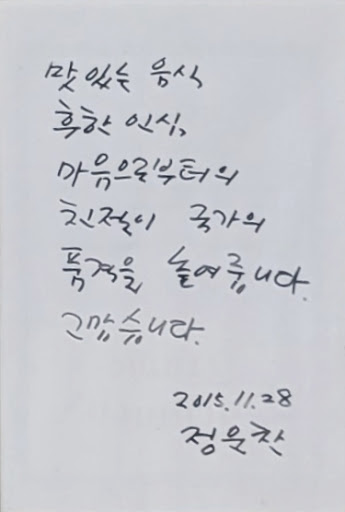 맛있는 음식
후한 인심,
마음으로부터의
친절이 국가의
품격을 높여줍니다.
고맙습니다.
2015.11.28
정운찬